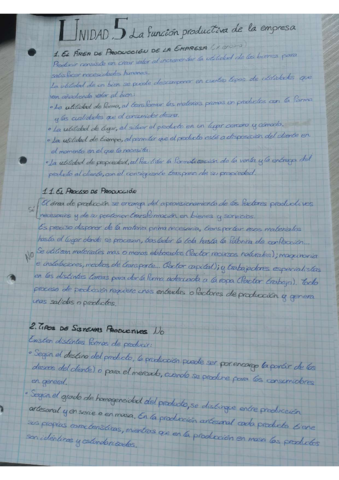 UNIDAD 5 La función productiva de la empresa
1. EL ÁREA DE PRODUCCIÓN DE LA EMPRESA
Producir consiste en crear valor o aumentar la utilidad de los bienes para
satisfacer necesidades humanas.
La utilidad de un bien se puede descomponer en cuatro tipos de utilidades que
van añadiendo valor al bien:
• La utilidad de forma, al transformar las materias primas en productos con la forma
y las cualidades que el consumidor desea.
• La utilidad de lugar, al situar el producto en un lugar cercano y cómodo
• La utilidad de tiempo, al permitir que el producto esté a disposición del cliente en
el momento en el que lo necesite.
• La utilidad de propiedad, al facilitar la formalización de la venta y la entrega del
producto al cliente, con el consiguiente traspaso de su propiedad.
1.1. EL PROCESO DE PRODUCCIÓN
El área de producción se encarga del aprovisionamiento de los factores productivos
necesarios y de su posterior transformación en bienes y servicios.
Es preciso disponer de la materia prima necesaria, transportar esos materiales
hasta el lugar donde se procesan, trasladar la tela hasta la fábrica de confección...
No Se utilizan materiales más o menos elaborados (factor recursos naturales); maquinaria
e instalaciones, medios de transporte... (factor capital); y trabajadores especializados
en las distintas tareas para dar la forma adecuada a la ropa (factor trabajo). Todo
proceso de producción requiere unas entradas o factores de producción y genera
unas salidas o productos.
2. TIPOS DE SISTEMAS PRODUCTIVOS No
Existen distintas formas de producir:
• Según el destino del producto, la producción puede ser por encargo (a partir de los
deseos del cliente) o para el mercado, cuando se produce para los consumidores
en general.
• Según el grado de homogeneidad del producto, se distingue entre producción
artesanal y en serie o en masa. En la producción artesanal cada producto tiene
sus propias características, mientras que en la producción en masa los productos
son idénticos y estandarizados.